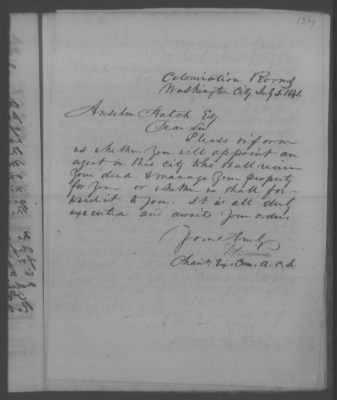 Colonization Rooms
Washington City July 2 1841.
Anselm Hatch Esq
Dear Sir
Please inform
us whether you will appoint an
agent in this city who shall receive
your deed & manage your property
for you or whether we shall for-
ward it to you. It is all duly
executed and awaits your orders.
Yours truly
Chan Ex. Com. A. C. S.